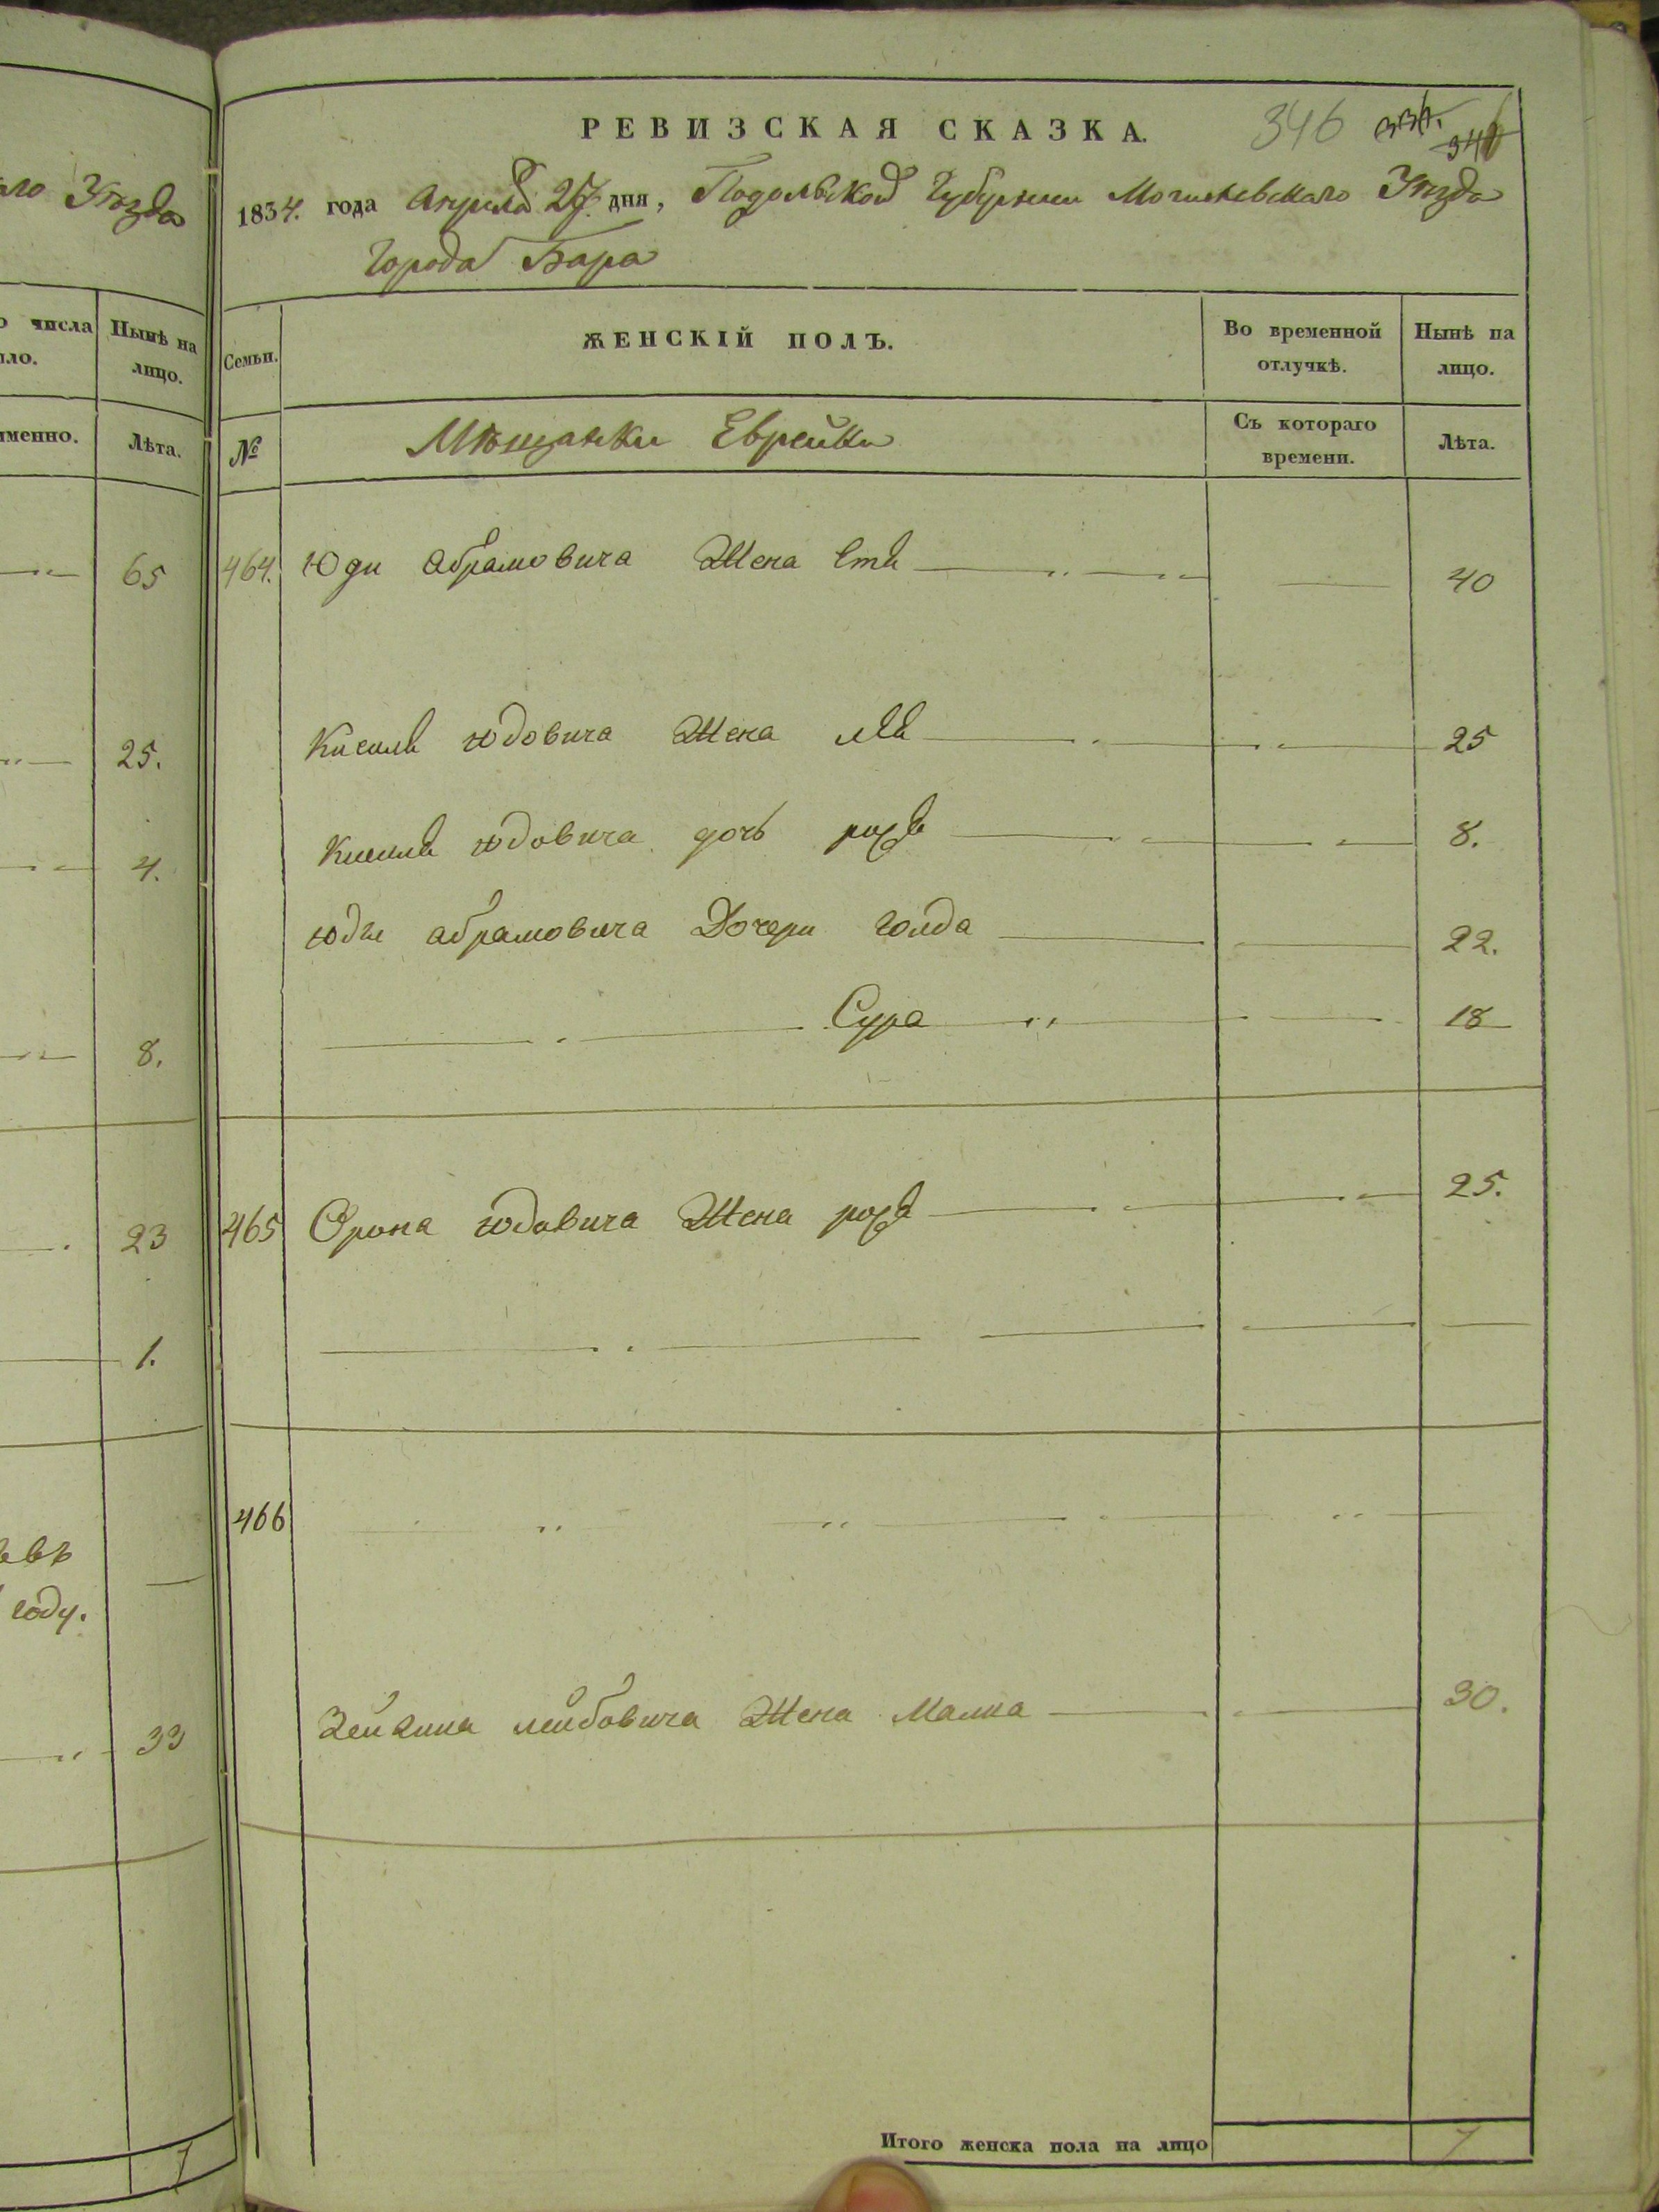 аго Уезда
о числа
ыло.
Нынѣ на
лицо.
именно.
Лѣта.
65
25.
4.
8.
23
1.
году.
33
7
РЕВИЗСКАЯ СКАЗКА.
346
346
1834. года Апреля 25 дня, Подольской Губернии Могилевского Уезда
Города Бара
Семьи.
ЖЕНСКІЙ ПОЛЪ.
Во временной
отлучкѣ.
Нынѣ на
лицо.
№
Мѣщанки Еврейки
Съ котораго
времени.
Лѣта.
464. Юди Абрамовича Жена Етя 40
Кисиля Юдовича Жена 25
Кисиля Юдовича дочь рузя 8.
Юди абрамовича Дочери голда 22.
Сура 18
465 Орона Юдовича Жена розя 25.
466
Зейлика лейбовича Жена Малка 30.
Итого женска пола на лицо 7